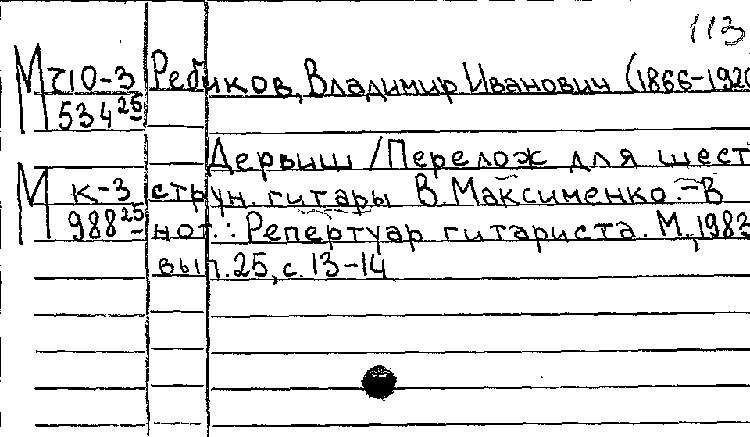 113
М Ч10-3 Ребиков, Владимир Иванович (1866-1920
534 25
Дервиш / Перелож для шест
М К-3 струн. гитары В. Максименко. - В
988 25 нот.: Репертуар гитариста. М., 1983
вып. 25, с. 13-14